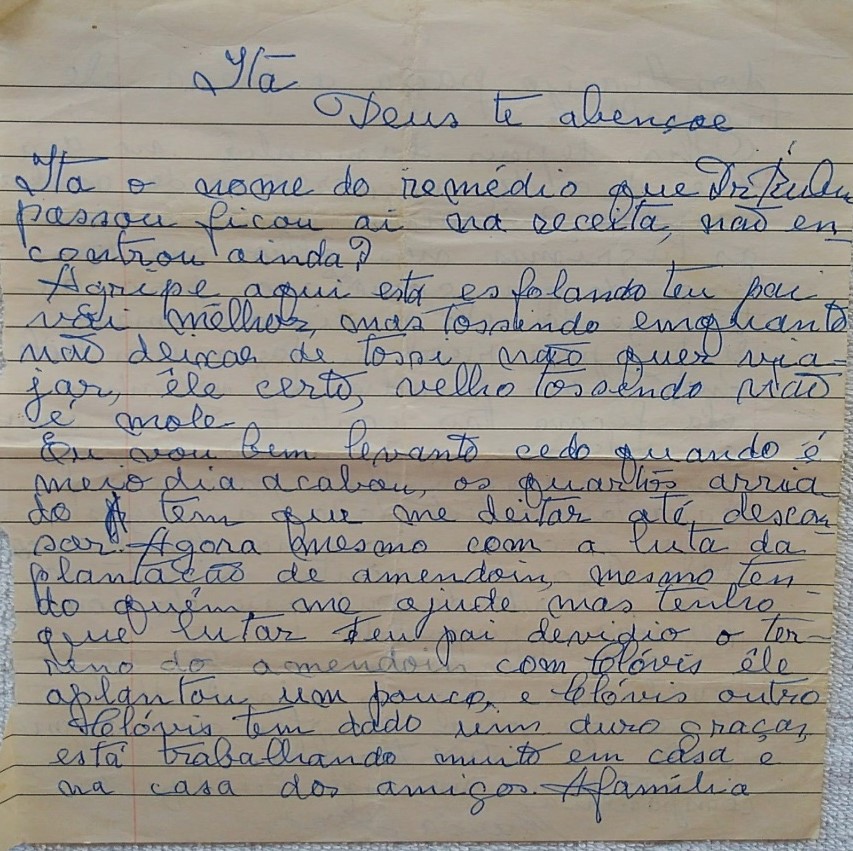 Itã
Deus te abençoe
Ita o nome do remédio que Dr.
passou ficou ai na receita, não en
controu ainda?
Agripe aqui está esfolando teu pai
vai mêlhor, mas tossindo emquanto
não deixar de tossi não quer via-
jar, êle certo, velho tossindo não
é mole
Eu vou bem levanto cedo quando é
meio dia acabou, os quartos arria
do tem que me deitar até, descan-
sar. Agora mesmo com a luta da
plantação de amendoin, mesmo ten
do quêm me ajude mas tenho
que lutar teu pai devidio o ter-
reno do amendoin com Clóvis êle
aplantou um pouco, e Clóvis outro
Clóvis tem dado um duro graças,
está trabalhando muito em casa e
na casa dos amigos. Afamília